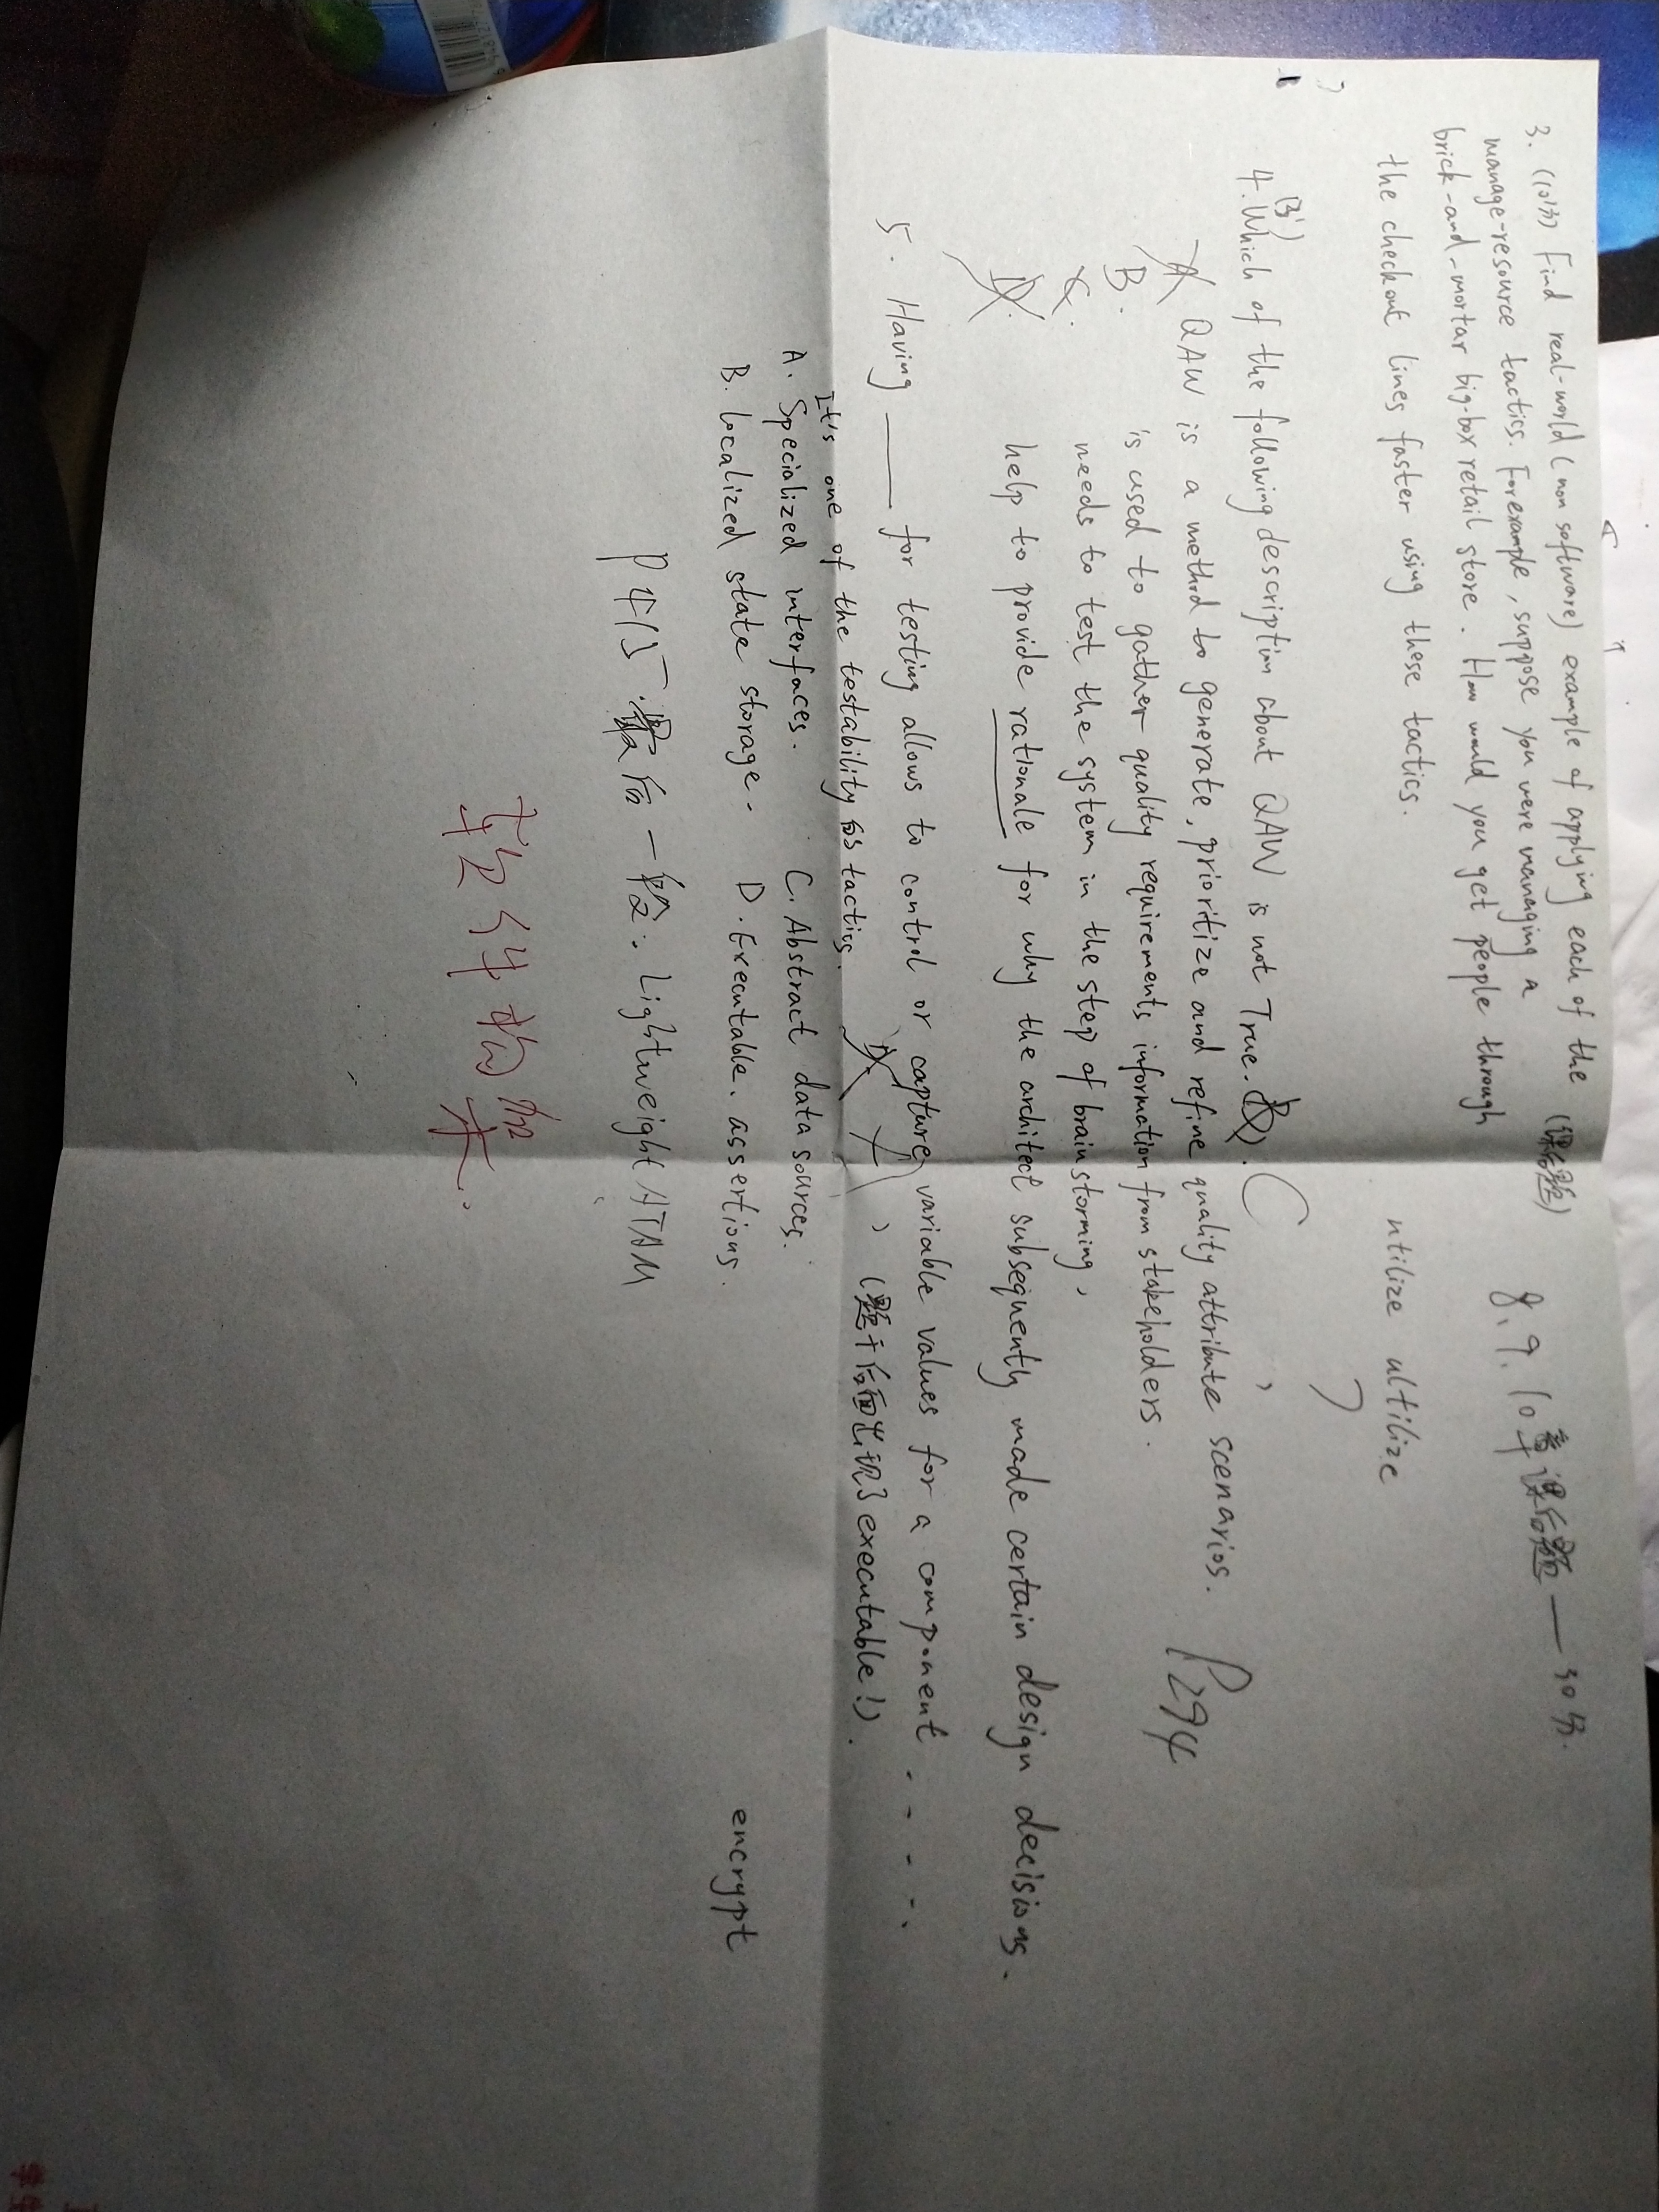 3. (10分) Find real-world (non software) example of applying each of the (课后题)
manage-resource tactics. For example, suppose you were managing a
brick-and-mortar big-box retail store. How would you get people through
the checkout lines faster using these tactics.
8. 9. 10章课后题 — 30分.
utilize ultilize
(3')
4. Which of the following description about QAW is not True. (B). C
A QAW is a method to generate, prioritize and refine quality attribute scenarios. P294
B. is used to gather quality requirements information from stakeholders.
C. needs to test the system in the step of brain storming,
D. help to provide rationale for why the architect subsequently made certain design decisions.
5. Having ____ for testing allows to control or capture variable values for a component . . . . .
(题干后面出现了 executable!).
It's one of the testability 的 tactics.
A. Specialized interfaces. C. Abstract data sources.
B. localized state storage. D. Executable. assertions.
encrypt
P415 最后一段. Lightweight ATAM
软件构架.
学生